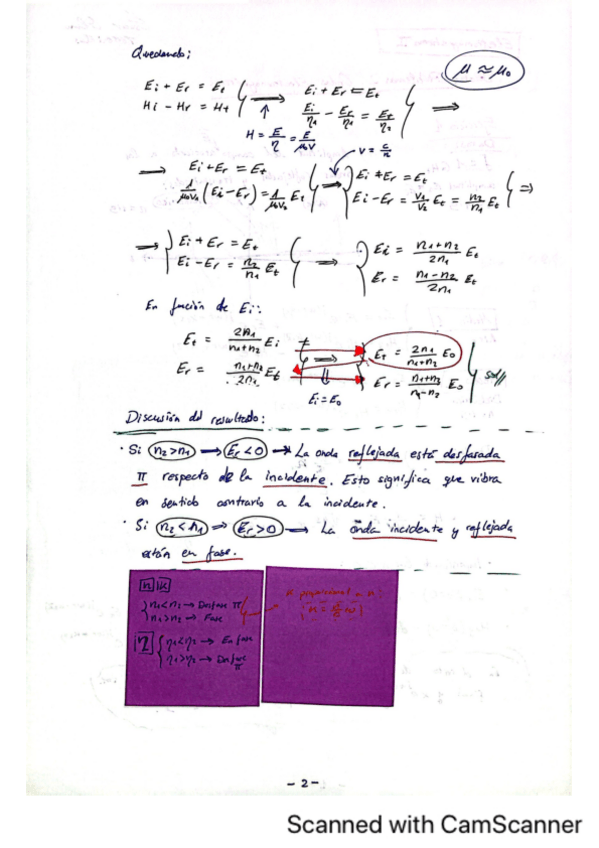 Quedando;
μ ≈ μ₀
Ei + Er = Et
Hi - Hr = Ht
⟶
Ei + Er = Et
Ei/η1 - Er/η1 = Et/η2
⟹
H = E/η = E/μ₀v
v = c/n
⟶ Ei + Er = Et
1/μ₀v₁ (Ei - Er) = 1/μ₀v₂ Et
⟹ Ei + Er = Et
Ei - Er = v1/v2 Et = n2/n1 Et
⟹
⟶ Ei + Er = Et
Ei - Er = n2/n1 Et
⟹
Ei = n1+n2/2n1 Et
Er = n1-n2/2n1 Et
En función de Ei:
Et = 2n1/n1+n2 Ei
Er = Et
⟹
Ei = E0
Et = 2n1/n1+n2 E0
Er = E0
sol//
Discusión del resultado:
· Si n2>n1 ⟶ Er<0 ⟶ La onda reflejada está desfasada
π respecto de la incidente. Esto significa que vibra
en sentido contrario a la incidente.
· Si n2<n1 ⟹ Er>0 ⟶ La onda incidente y reflejada
están en fase.
n k
n1<n2 → Desfase π
n1>n2 → Fase
η
η1<η2 → En fase
η1>η2 → Desfase π
k proporcional a n!
- 2 -
Scanned with CamScanner